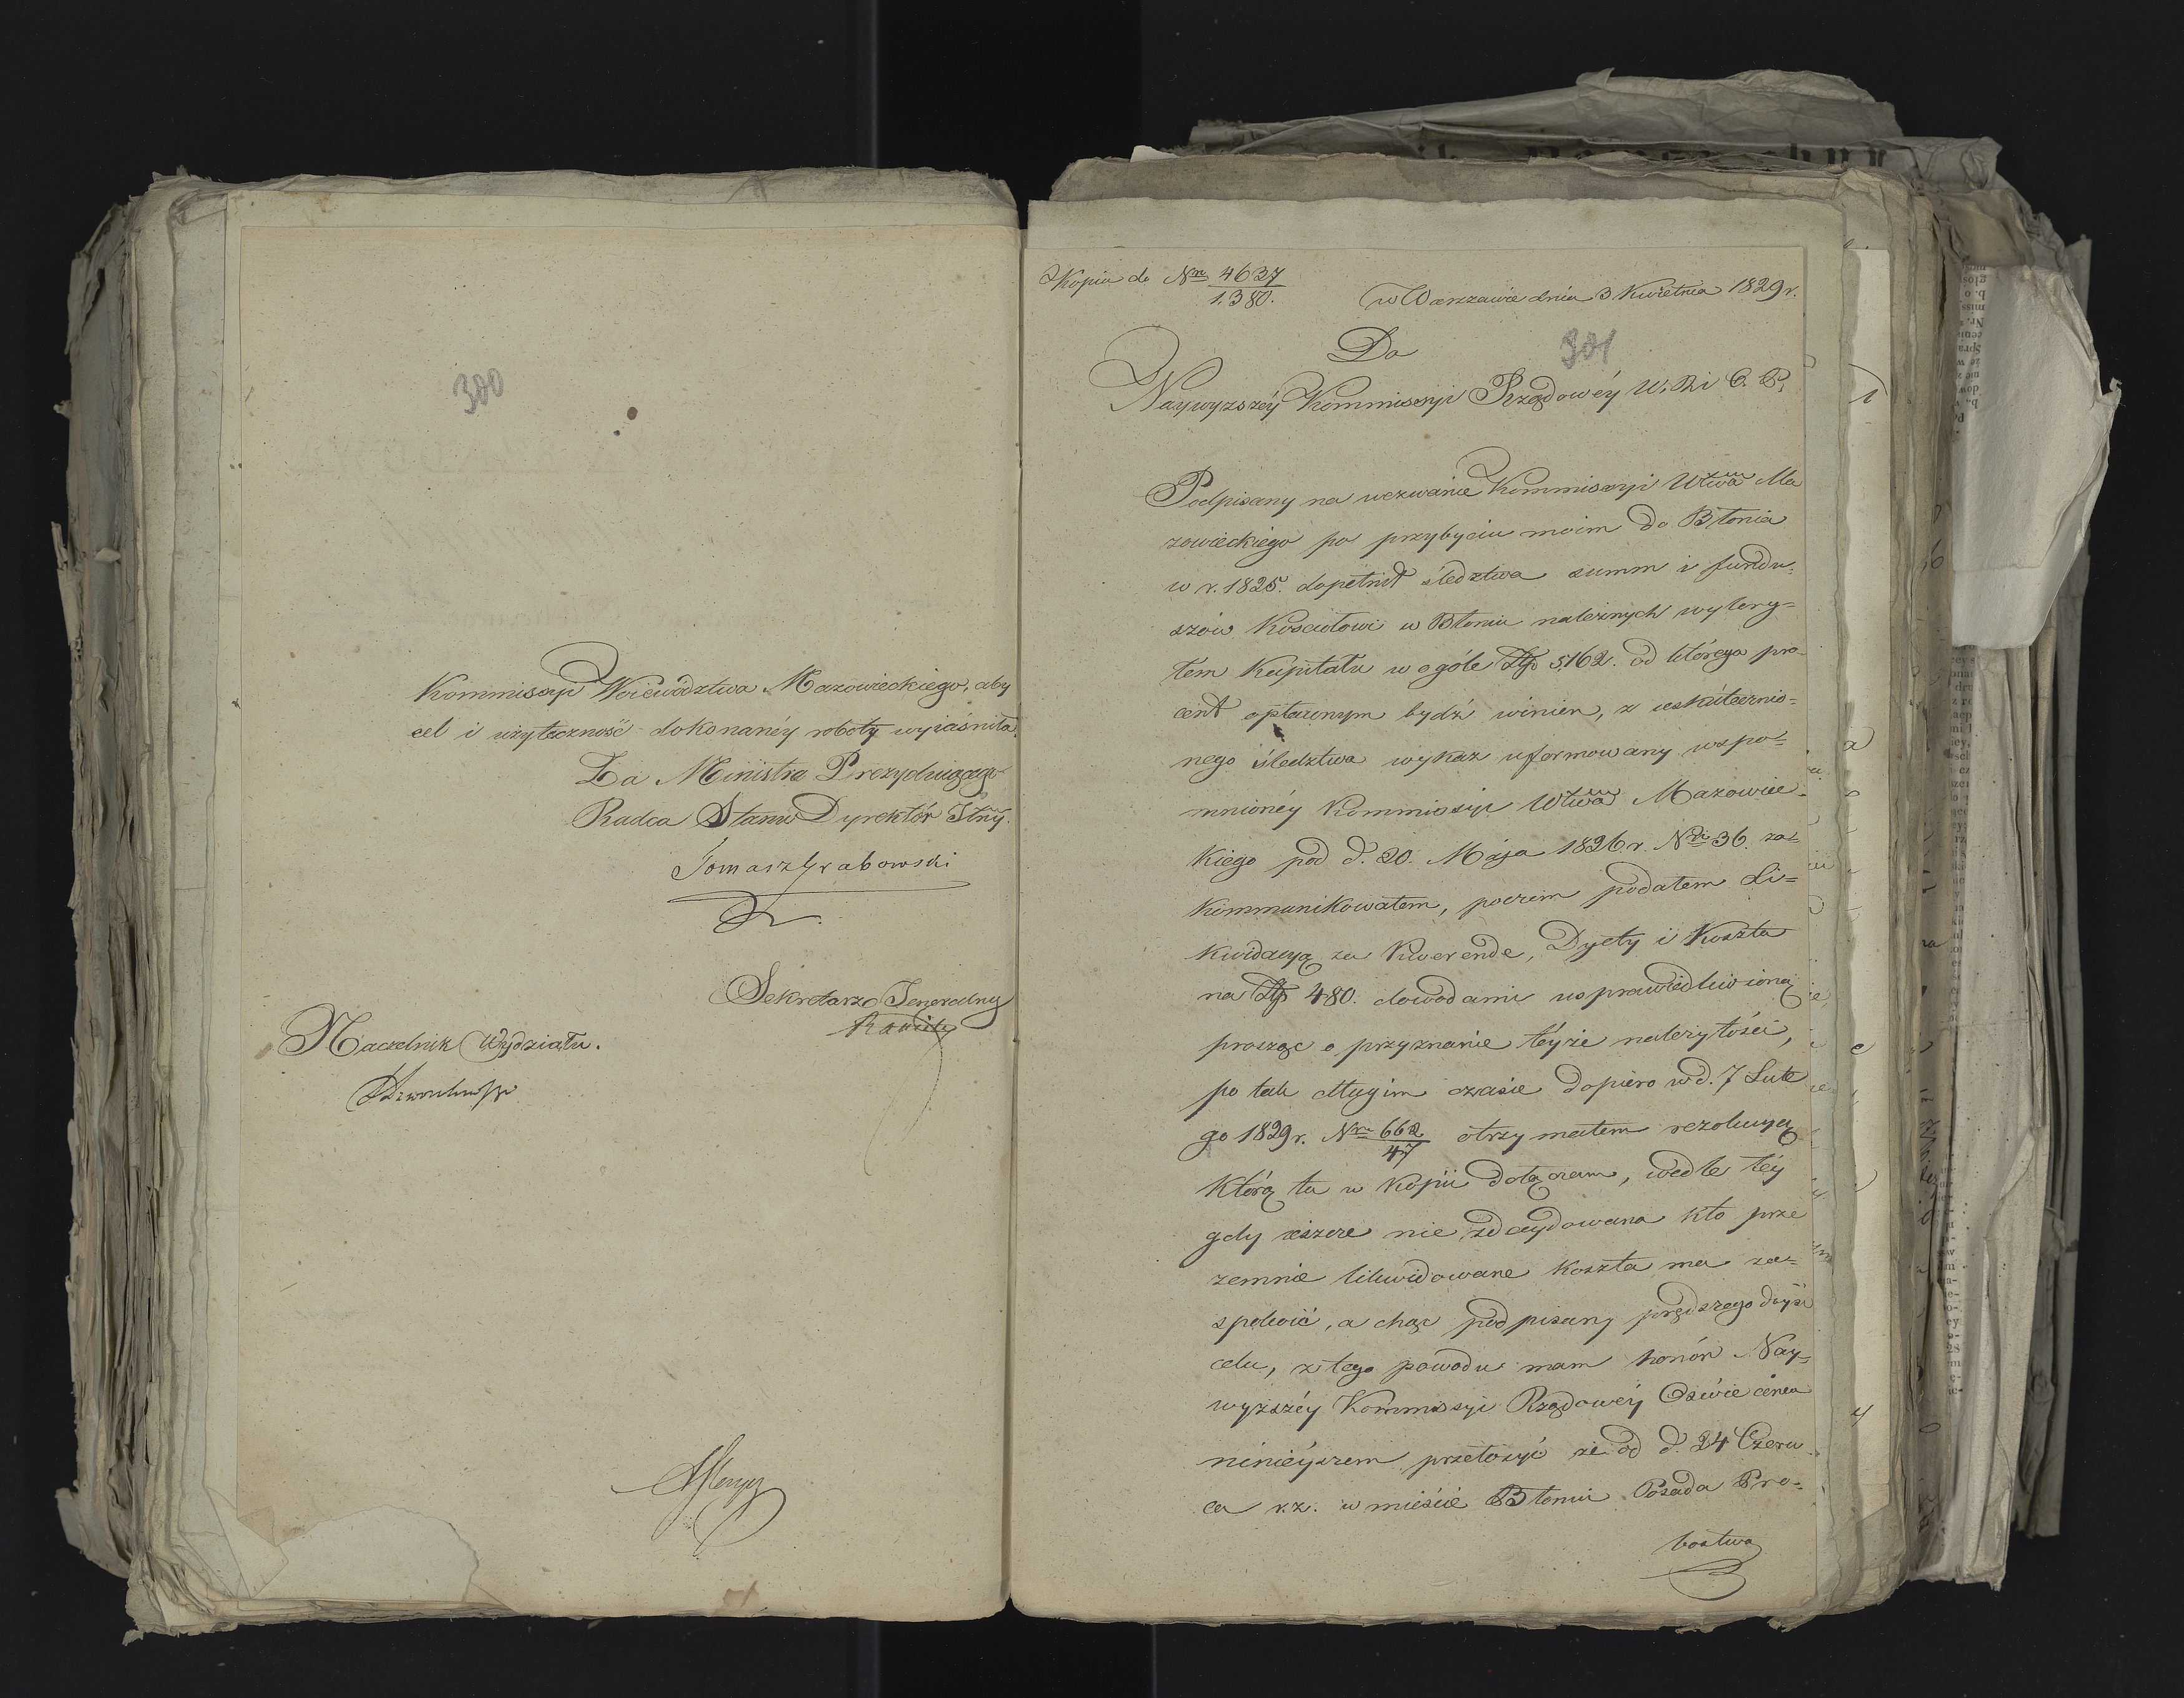 300
Kommissyi Woiewodztwa Mazowieckiego, aby
cel i użyteczność dokonanéy roboty wyiaśniła.
Za Ministra Prezyduiącego
Radca Stanu Dyrektór Jlny.
Tomasz Grabowski
Sekretarz Jeneralny
Naczelnik Wydziału.
Kopia do Nru 4637
1,380.
w Warszawie dnia 3 Kwietnia 1829 r.
301
Do
Naywyższéy Kommissyi Rządowéy W. R. i O. P.
Podpisany na wezwanie Kommissyi Wtwa Ma
zowieckiego po przybyciu moim do Błonia
w r. 1825. dopełnił śledztwa summ i fundu-
szów Kościołowi w Błoniu należnych wykry-
tem Kapitału w ogóle Złp 5,162. od którego pro-
cent opłaconym bydź winien, z uskutecznio-
nego śledztwa wykaz uformowany wspo-
mnionéy Kommissyi Wtwa Mazowiec-
kiego pod d. 20. Maja 1826 r. Nr 36. za-
kommunikowałem, poczem podałem Li-
kwidacyą za Kwerende, Dyety i Koszta
na Złp 480. dowodami usprawiedliwioną
prosząc o przyznanie téyże należytości,
po tak długim czasie dopiero w d. 7 Lute
go 1829 r. Nro 662
47
otrzymałem rezolucyą
którą tu w Kopii dołączam, wedle téy
gdy ieszcze nie zdecydowana kto prze
zemnie likwidowane koszta ma za-
spokoić, a chcąc podpisany prędszego dóyść
celu, z tego powodu mam honór Nay-
wyższéy Kommissyi Rządowéy Oświecenia
ninieyszem przełożyć że od d. 24 Czerw-
ca r. z. w mieście Błoniu Posada Pro-
bostwa